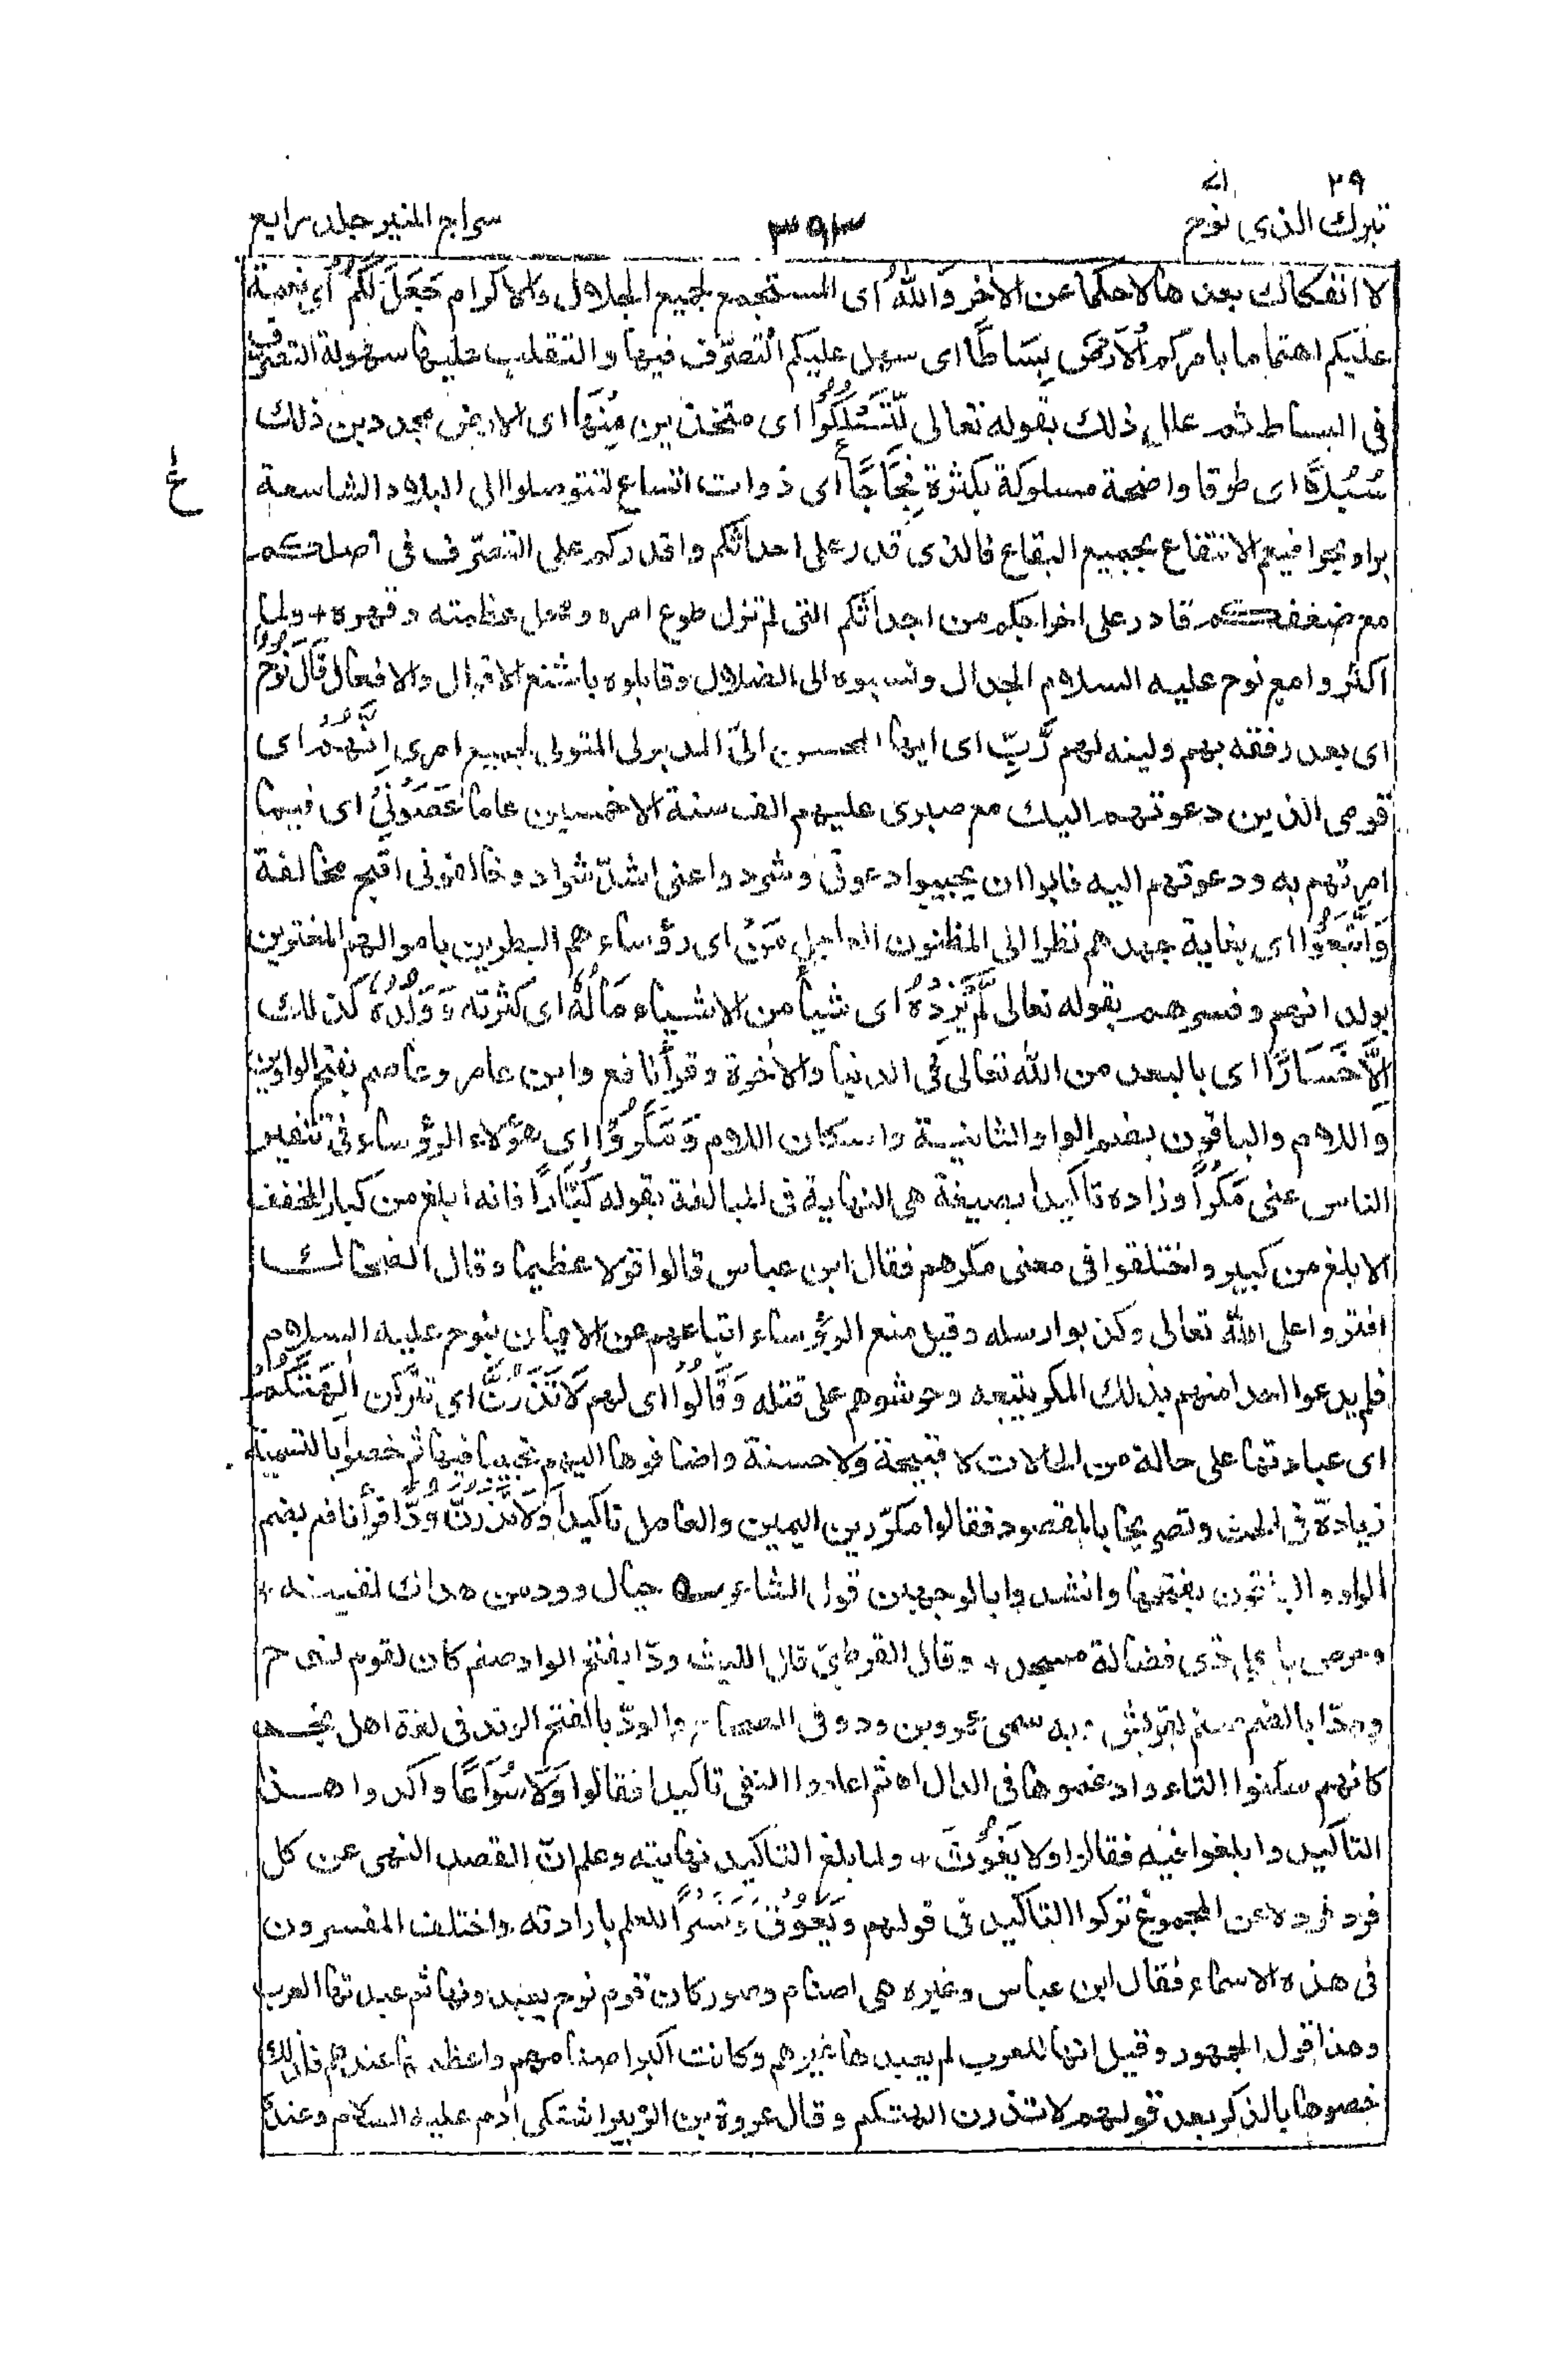 ٢٩
تبرك الذي نوح
٣٩٣
سراج المنير جلد رابع
لا انفكاك بعد هالاحكما عن الاٰخر وَاللّٰهُ اى المستجمع لجميع الجلال والاكرام جَعَلَ لَكُمُ اى نعمة
عليكم اهتماما بامركم الْاَرْضَ بِسَاطًا اى سهل عليكم التصرّف فيها والتقلب عليها سهولة التصرّف
فى البساط ثم علل ذلك بقوله تعالى لِّتَسْلُكُوْا اى متخذين مِنْهَا اى الارض مجددين ذلك
سُبُلًا اى طرقا واضحة مسلوكة بكثرة فِجَاجًا اى ذوات اتساع لتتوصلوا الى البلاد الشاسعة
برا وبحرا فيعم الانتفاع بجميع البقاع فالذى قدر على احداثكم واقدركم على التصرّف فى اصلحكم
مع ضعفكم قادر على اخراجكم من اجداثكم التى لم تزل طوع امره ومحل عظمته وقهره ولما
اكثروا مع نوح عليه السلام الجدال ونسبوه الى الضلال وقابلوه باشنع الاقوال والافعال قَالَ نُوْحٌ
اى بعد رفقه بهم ولينه لهم رَّبِّ اى ايها المحسن الىّ المدبر لى المتولى لجميع امرى اِنَّهُمْ اى
قومى الذين دعوتهم اليك مع صبرى عليهم الف سنة الا خمسين عاما عَصَوْنِىْ اى فيما
امرتهم به ودعوتهم اليه فابوا ان يجيبوا دعوتى وشردوا عنى اشدّ شراد وخالفونى اقبح مخالفة
وَاتَّبَعُوْا اى بغاية جهدهم نظرا الى المظنون العاجل مَنْ اى رؤساءهم البطرين باموالهم المغترين
بولدانهم وفسرهم بقوله تعالى لَّمْ يَزِدْهُ اى شيأ من الاشياء مَالُهٗ اى كثرته وَوَلَدُهٗ كذلك
اِلَّا خَسَارًا اى بالبعد من اللّٰه تعالى فى الدنيا والاٰخرة وقرأ نافع وابن عامر وعاصم بفتح الواوين
واللام والباقون بضم الواو الثانية واسكان اللام وَمَكَرُوْا اى هؤلاء الرؤساء فى تنفير
الناس عنى مَكْرًا وزاده تاكيدا بصيغة هى النهاية فى المبالغة بقوله كُبَّارًا فانه ابلغ من كبار المخفف
الابلغ من كبير واختلفوا فى معنى مكرهم فقال ابن عباس قالوا قولا عظيما وقال الضحاك
افتروا على اللّٰه تعالى وكذبوا رسله وقيل منع الرؤساء اتباعهم عن الايمان بنوح عليه السلام
فلم يدعوا احدا منهم بذلك المكر يتبعه وحرشوهم على قتله وَقَالُوْا اى لهم لَا تَذَرُنَّ اى تتركن اٰلِهَتَكُمْ
اى عبادتها على حالة من الحالات لا قبيحة ولا حسنة واضافوها اليهم تحببا فيها ثم خصوا بالتسمية
زيادة فى الحث وتصريحا بالمقصود فقالوا مكرّرين اليمين والعامل تاكيدا وَلَا تَذَرُنَّ وَدًّا قرأ نافع بضم
الواو والباقون بفتحها وانشدوا بالوجهين قول الشاعر حياك وود من هداك لفتية
وخوص باعلى ذى فضالة مسجد وقال القرطبىّ قال الليث ودّا بفتح الواو صنم كان لقوم نوح
وودّا بالضم صنم لقريش وبه سمى عمرو بن ود وفى الصحاح والودّ بالفتح الوتد فى لغة اهل نجد
كانهم سكنوا التاء وادغموها فى الدال اه ثم اعادوا النفى تاكيدا فقالوا وَلَا سُوَاعًا واكدوا هذا
التاكيد وابلغوا فيه فقالوا ولا يَغُوْثَ ولما بلغ التاكيد نهايته وعلم انّ القصد النهى عن كل
فرد فرد لا عن المجموع تركوا التاكيد فى قولهم وَيَعُوْقَ وَنَسْرًا للعلم بارادته واختلف المفسرون
فى هذه الاسماء فقال ابن عباس وغيره هى اصنام وصور كان قوم نوح يعبدونها ثم عبدتها العرب
وهذا قول الجمهور وقيل انها للعرب لم يعبدها غيرهم وكانت اكبر اصنامهم واعظمها عندهم فلذلك
خصوها بالذكر بعد قولهم لا تذرن الهتكم وقال عروة بن الزبير اشتكى اٰدم عليه السلام وعنده